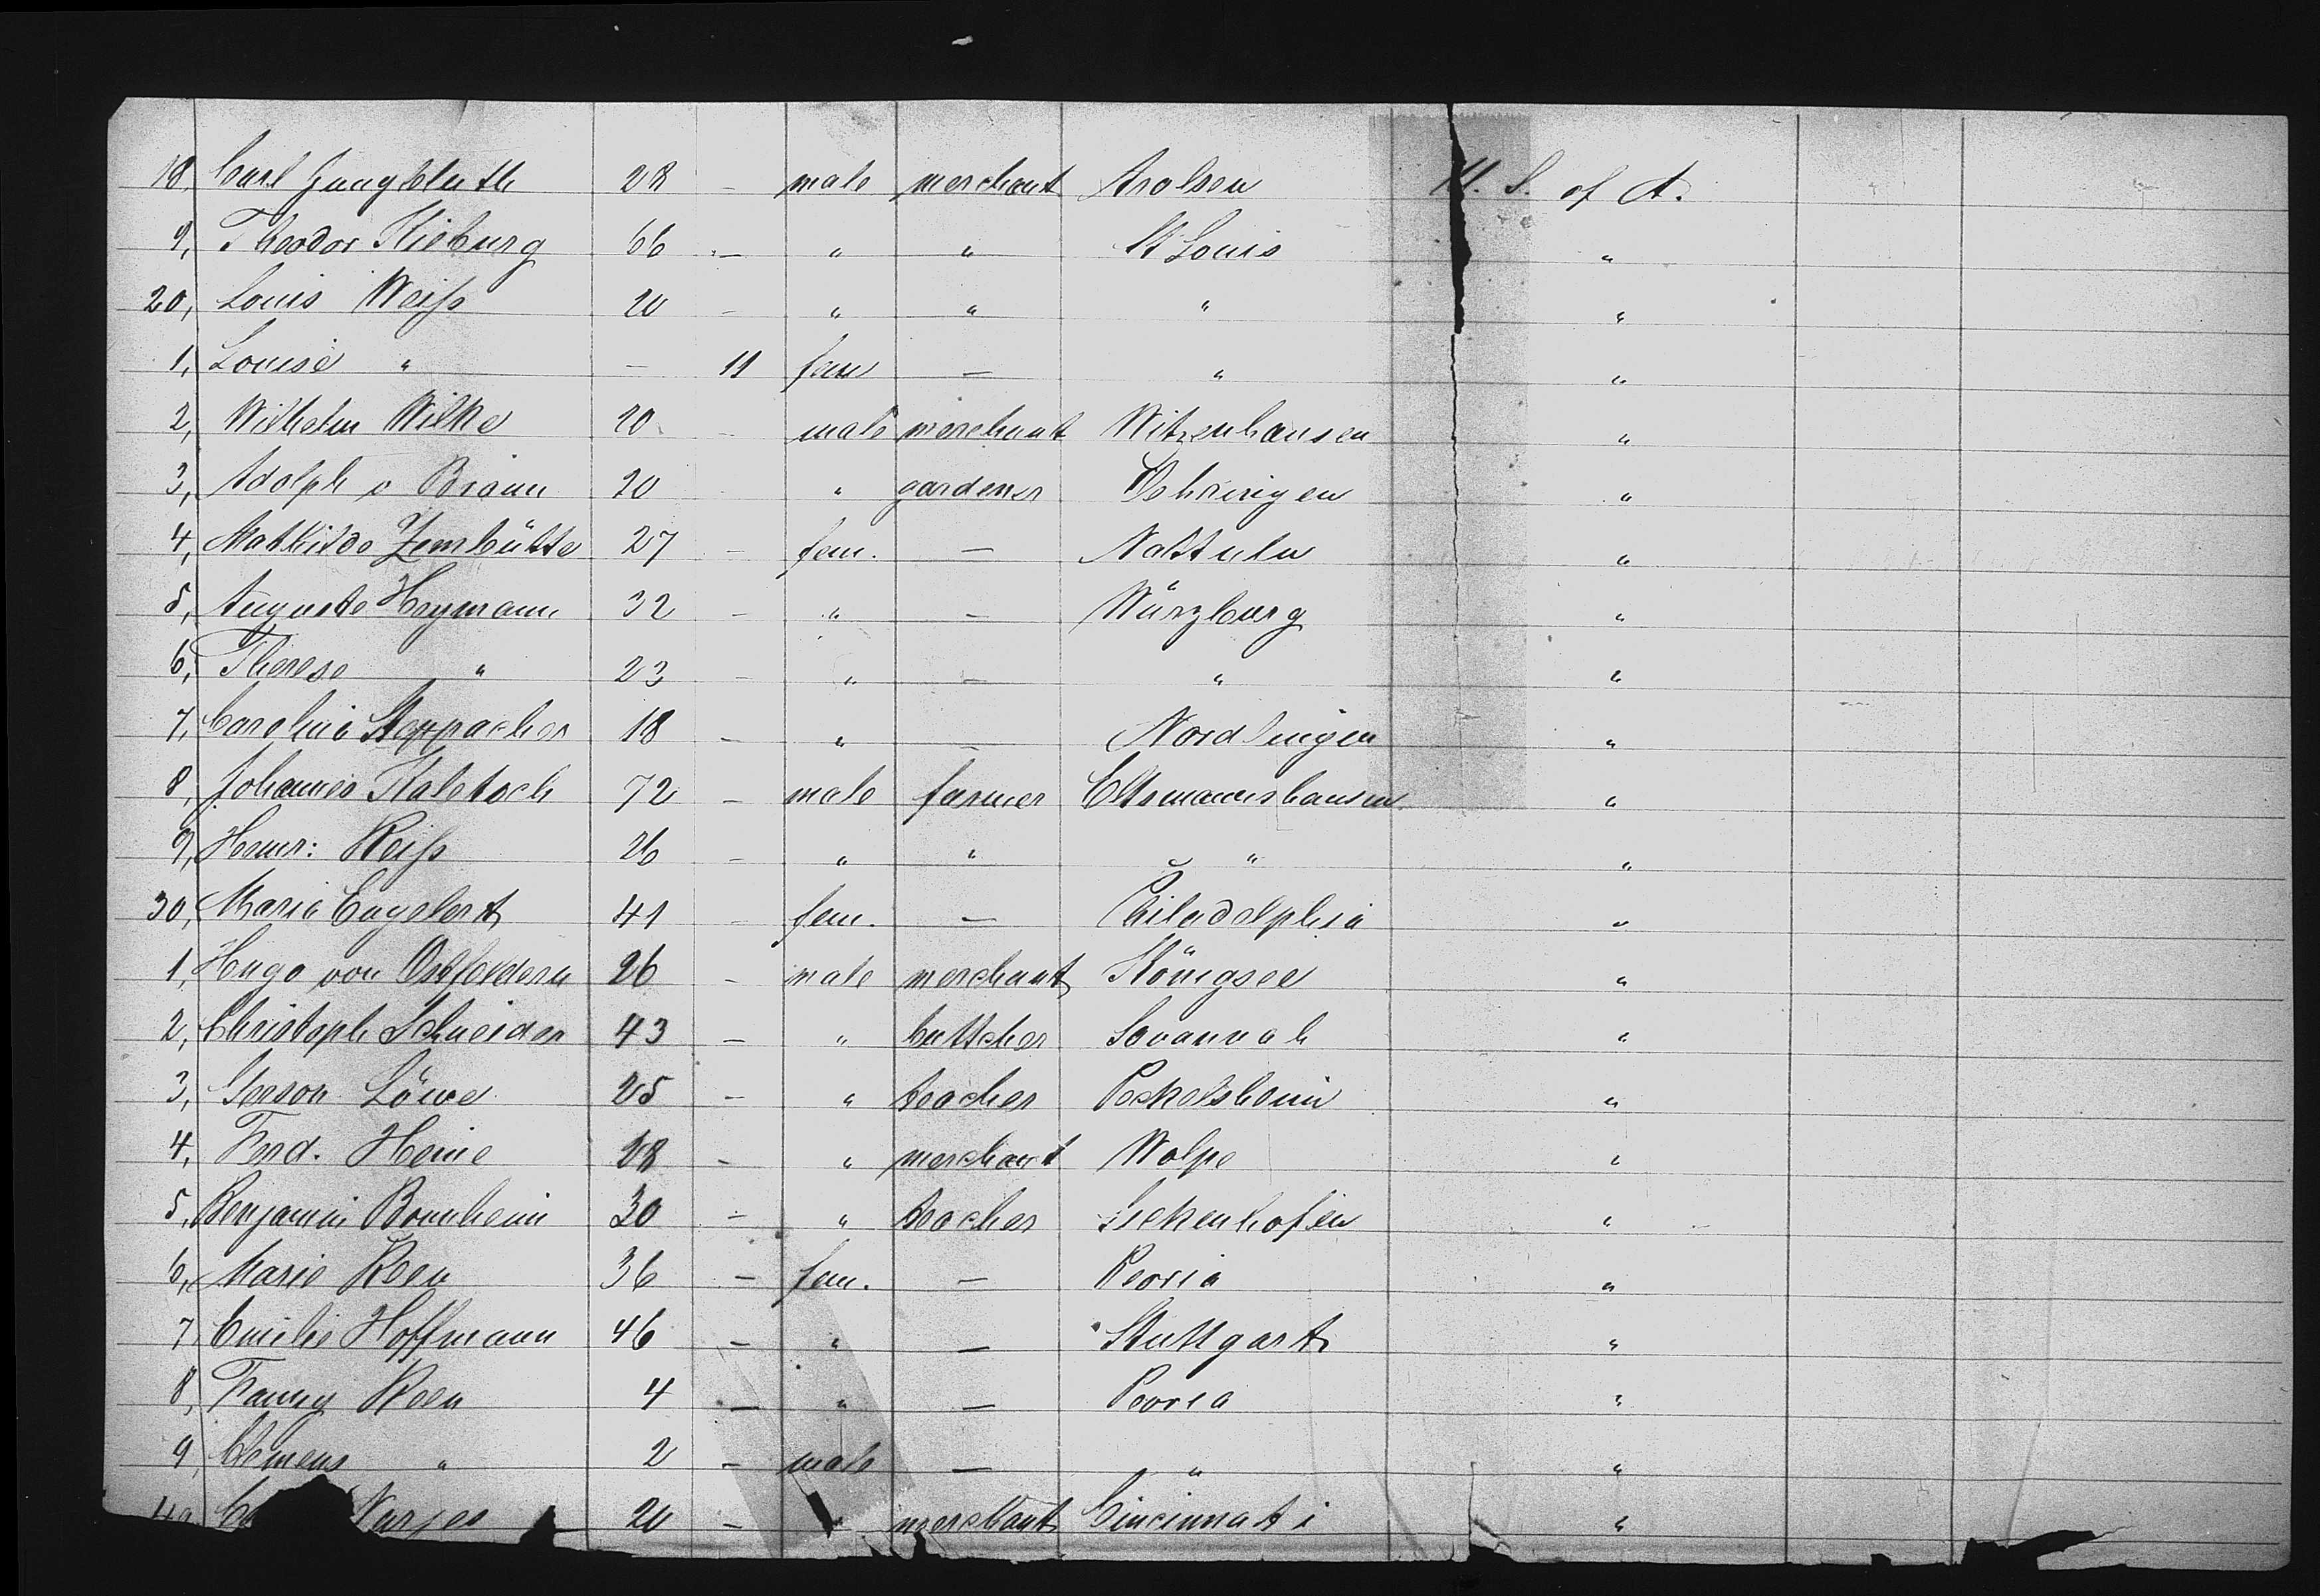 18, Carl Jungbluth 28 - male merchant Arolsen U. S. of A.
9, Theodor Klieburg 66 - " " St Louis "
20, Louis Weiſs 20 - " " " "
1, Louise " - 11 fem — " "
2, Wilhelm Wilke 20 - male merchant Witzenhausen "
3, Adolph v Braun 20 " gardener Oehringen "
4, Mathilde Zembütte 27 - fem. — "
5, Auguste Heymann 32 - " — Würzburg "
6, Therese " 23 - " — " "
7, Caroline Steppacher 18 - " — Nordlingen "
8, Johannes Kalbtoch 72 - male farmer Eltsmannshausen "
9, Heinr: Reiſs 26 - " " " "
30, Marie Engelert 41 - fem. — Philadelphia "
1, Hugo von 26 - male merchant Königsee "
2, Christoph Schneider 43 - " buttcher Savannah "
3, Gerson Löwe 25 - " teacher Peckelsheim "
4, Ferd. Heine 28 - " merchant Wolpe "
5, Benjamin Bornheim 30 - " teacher Sickenhofen "
6, Marie Keen 36 - fem. — Peoria "
7, Emilie Hoffmann 46 - " — Stuttgart "
8, Fanny Keen 4 - " — Peoria "
9, Clemens " 2 - male — " "
40, Varges 20 - " merchant Cincinnati "